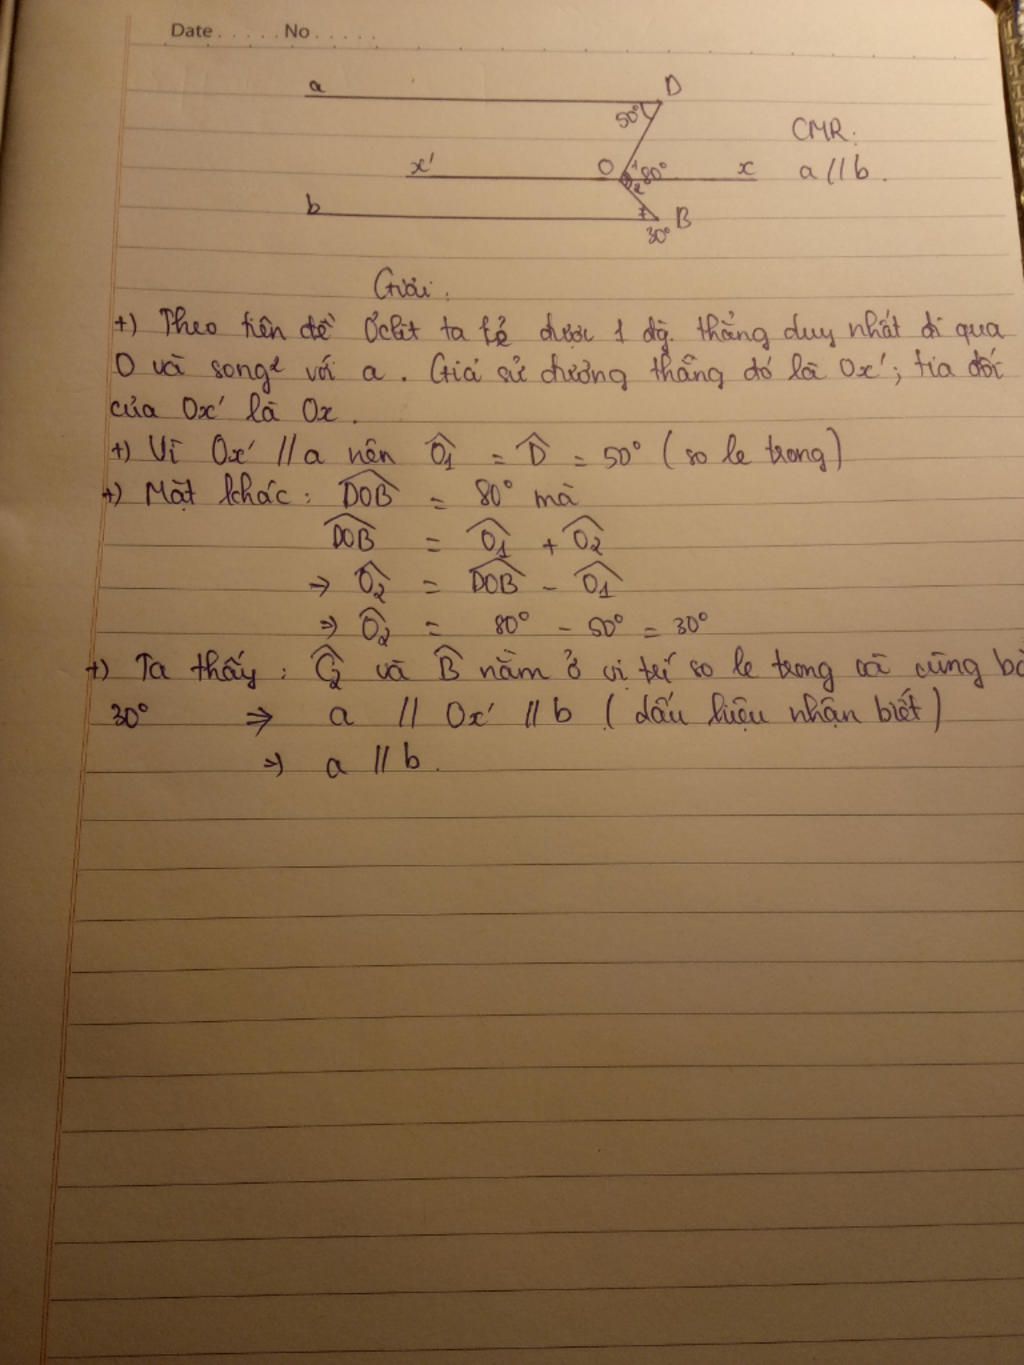 Date ..... No .....
a D
50°
CMR:
x' O 1 80° x a // b.
2
b B
30°
Giải:
+) Theo tiên đề Ơclit ta kẻ được 1 đg. thẳng duy nhất đi qua
O và song² với a. Giả sử đường thẳng đó là Ox'; tia đối
của Ox' là Ox.
+) Vì Ox' // a nên Ô1 = D̂ = 50° (so le trong)
+) Mặt khác: DOB̂ = 80° mà
DOB̂ = Ô1 + Ô2
⇒ Ô2 = DOB̂ - Ô1
⇒ Ô2 = 80° - 50° = 30°
+) Ta thấy: Ô2 và B̂ nằm ở vị trí so le trong và cùng bằ
30° ⇒ a // Ox' // b (dấu hiệu nhận biết)
⇒ a // b.